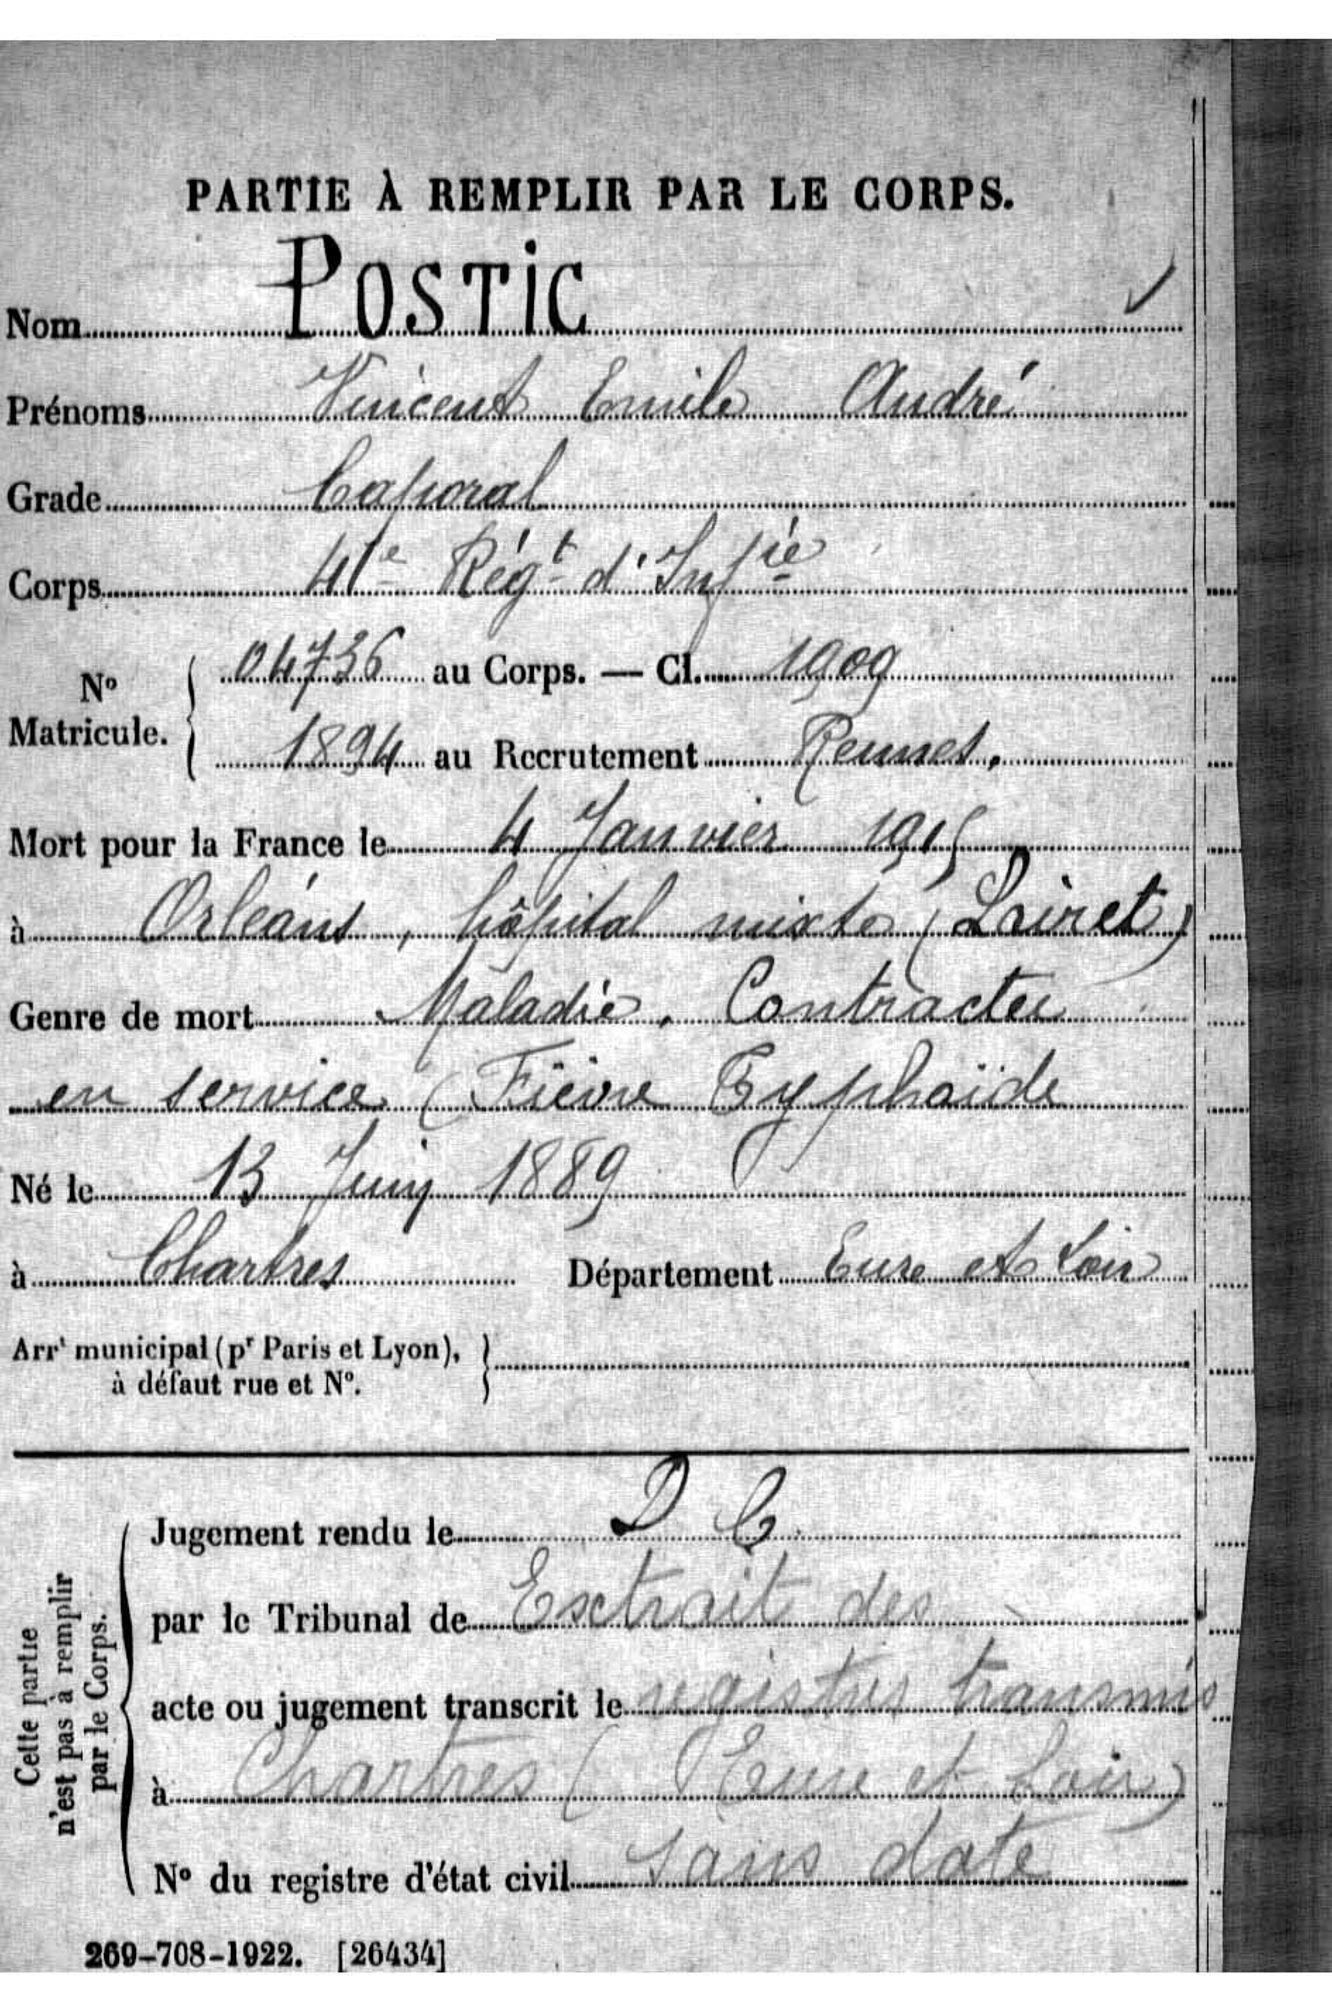 PARTIE À REMPLIR PAR LE CORPS.
Nom POSTIC
Prénoms Vincent Emile André
Grade Caporal
Corps 41e Régt d'Infie
No Matricule. { 04736 au Corps. — Cl. 1909
1894 au Recrutement Rennes.
Mort pour la France le 4 Janvier 1915
à Orléans, hôpital mixte (Loiret)
Genre de mort Maladie. Contractée
en service (Fièvre Typhoïde
Né le 13 Juin 1889
à Chartres Département Eure et Loir
Arrt municipal (pr Paris et Lyon), }
à défaut rue et No.
Cette partie
n'est pas à remplir
par le Corps.
Jugement rendu le D C
par le Tribunal de Extrait des
acte ou jugement transcrit le registres transmis
à Chartres (Eure et Loir)
No du registre d'état civil sans date
269-708-1922. [26434]